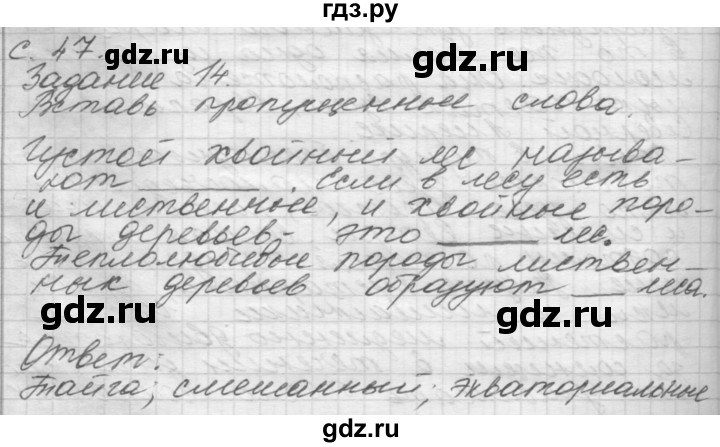 гдз.ру
с. 47.
gdz.ru gdz.ru
Задание 14.
Вставь пропущенные слова.
Густой хвойный лес называ-
ют ______. Если в лесу есть
и лиственные, и хвойные поро-
gdz.ru gdz.ru
ды деревьев - это ______ лес.
Теплолюбивые породы листвен-
ных деревьев образуют ___ леса.
gdz.ru gdz.ru
Ответ:
Тайга; смешанный; экваториальные
gdz.ru gdz.ru
гдз.ру